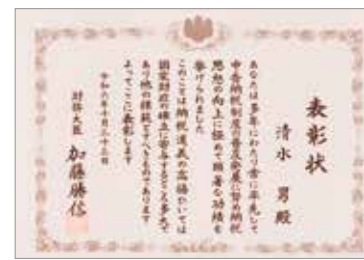 表彰状
清水 男殿
あなたは多年にわたり常に率先して
申告納税制度の普及発展に努め納税
思想の向上に極めて顕著な功績を
挙げられました
このことは納税道義の高揚ひいては
国家財政の確立に寄与するところ多大で
あり他の模範とすべきものであります
よってここに表彰します
令和六年十月二十三日
財務大臣 加藤勝信